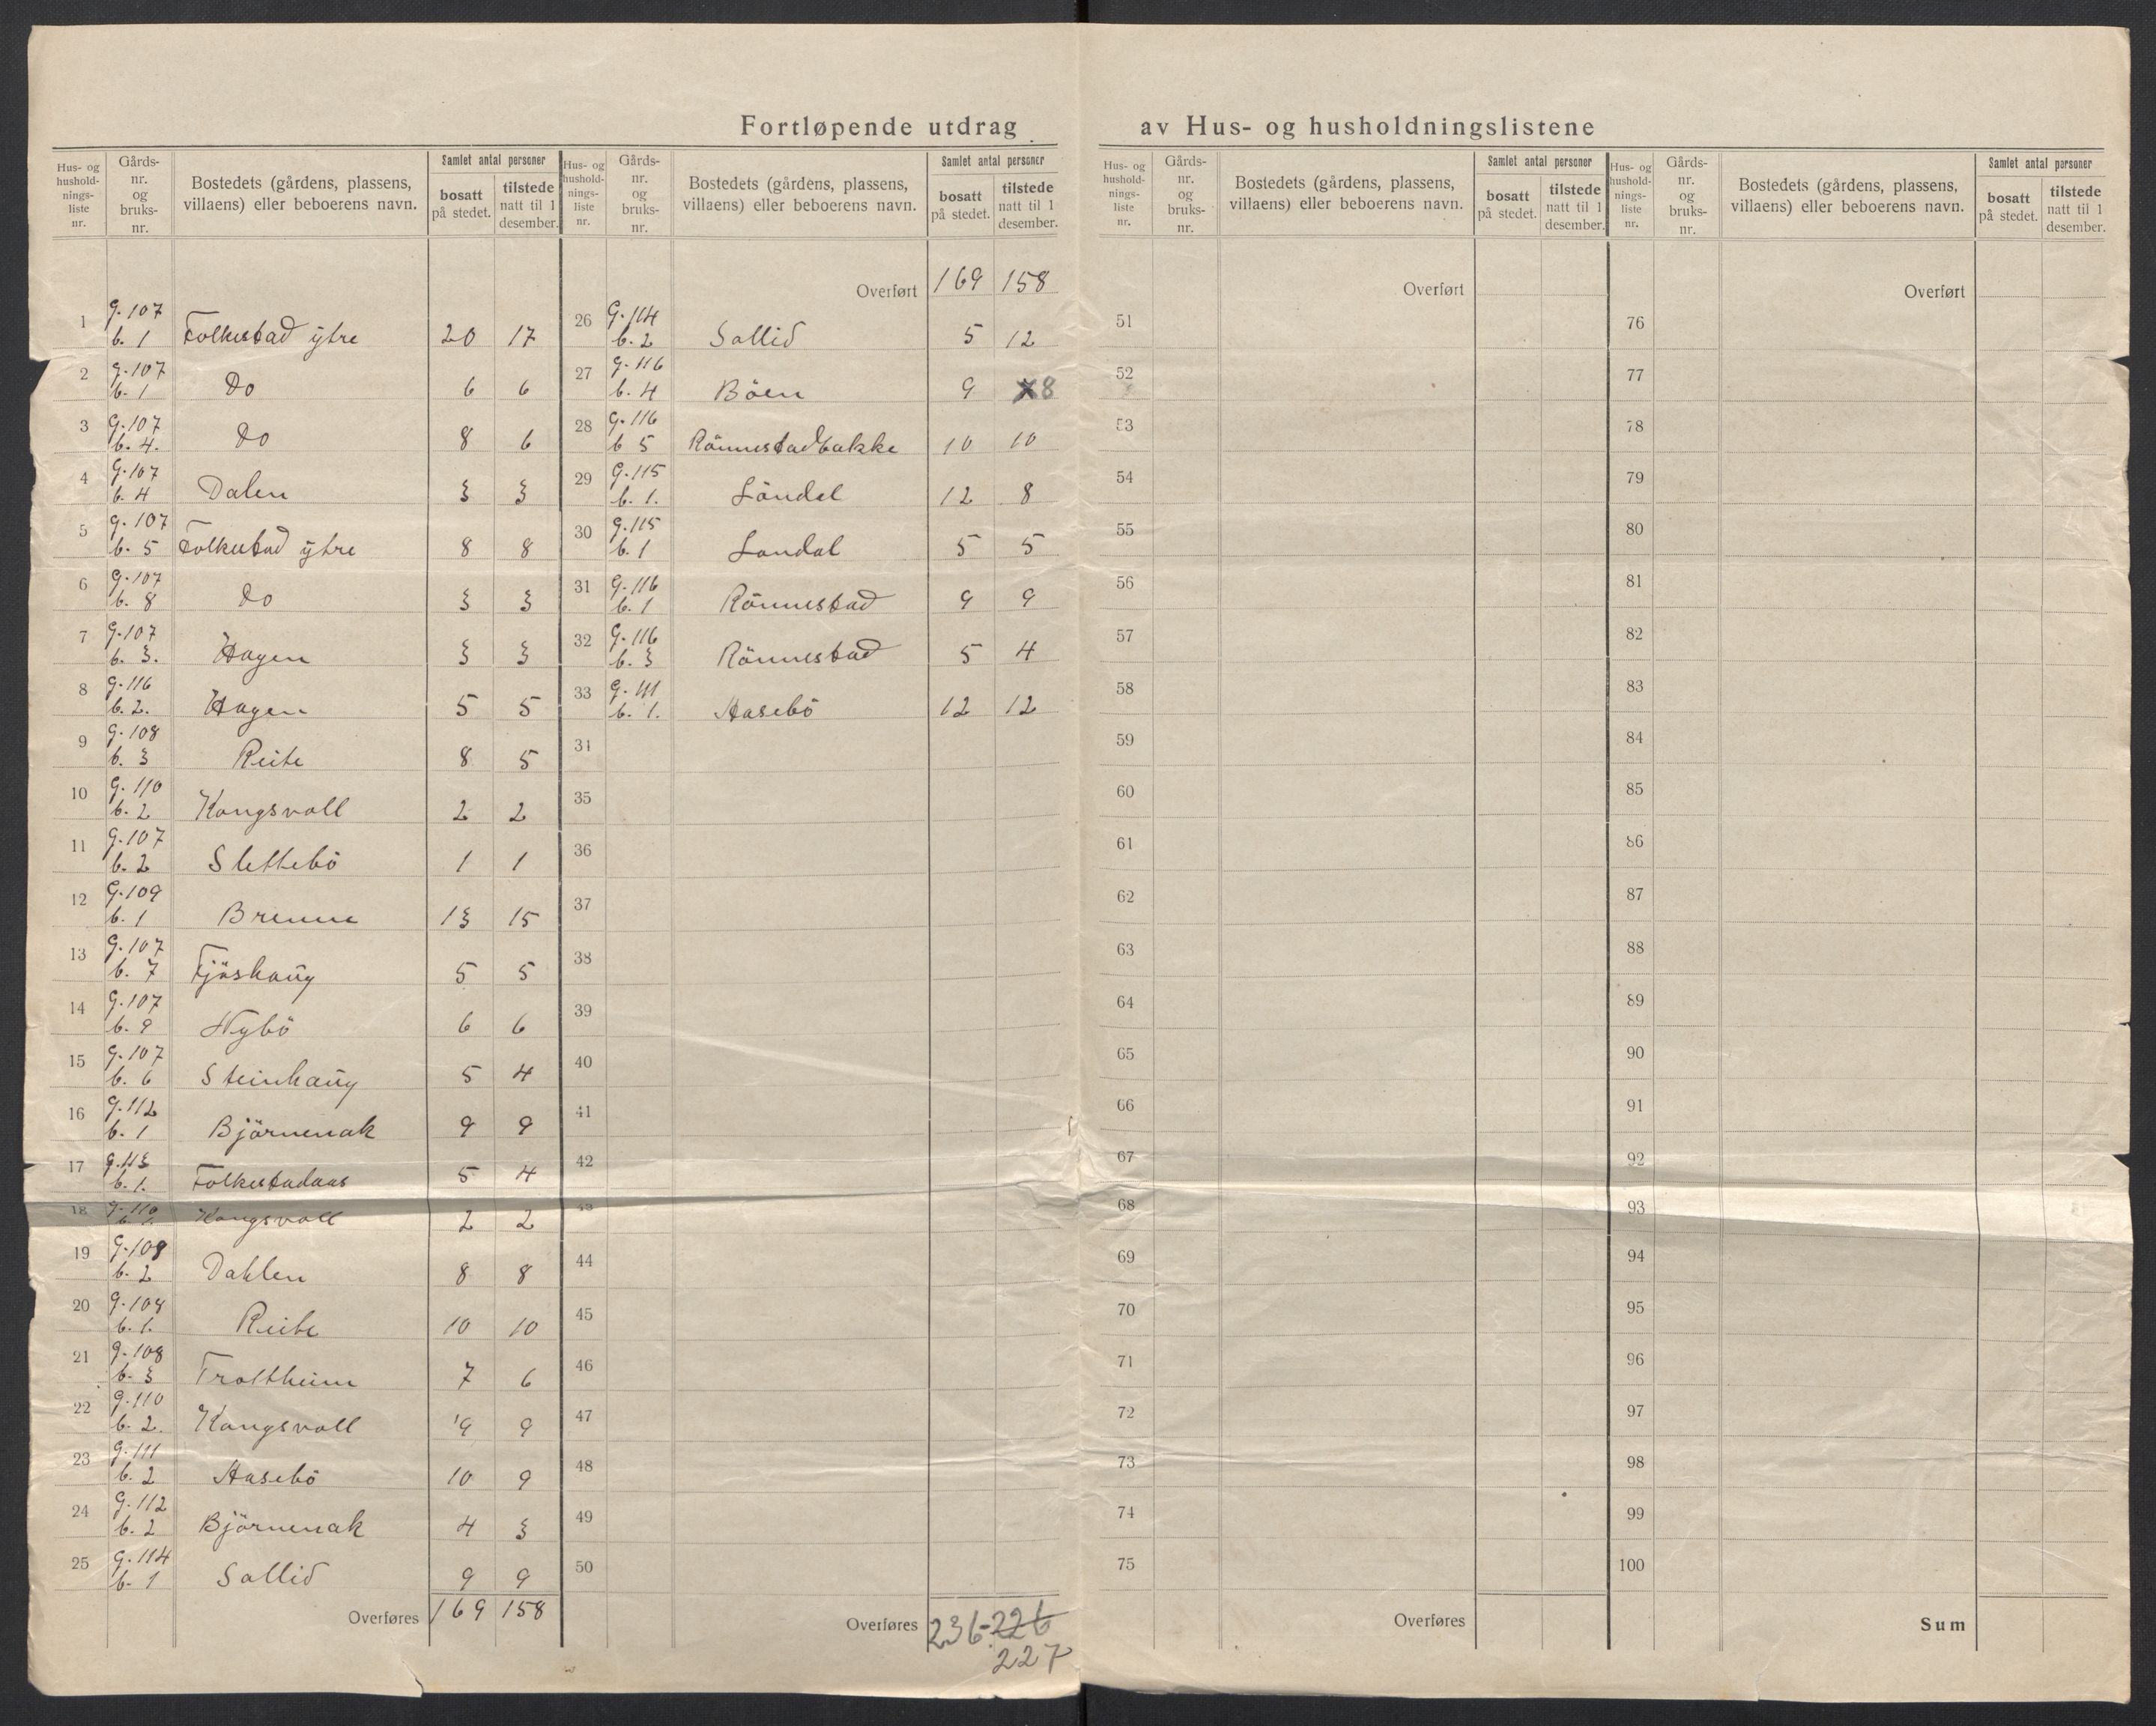 Fortløpende utdrag av Hus- og husholdningslistene
Hus- og husholdnings-liste nr. Gårds-nr. og bruks-nr. Bostedets (gårdens, plassens, villaens) eller beboerens navn. Samlet antal personer bosatt på stedet. tilstede natt til 1 desember.
1 g. 107 b. 1 Folkestad ytre 20 17
2 g. 107 b. 1 Do 6 6
3 g. 107 b. 4. Do 8 6
4 g. 107 b. 4 Dalen 3 3
5 g. 107 b. 5 Folkestad ytre 8 8
6 g. 107 b. 8 Do 3 3
7 g. 107 b. 3. Hagen 3 3
8 g. 116 b. 2. Hagen 5 5
9 g. 108 b. 3 Reite 8 5
10 g. 110 b. 2 Kongsvoll 2 2
11 g. 107 b. 2 Slettebö 1 1
12 g. 109 b. 1 Brenne 13 15
13 g. 107 b. 7 Fjöshaug 5 5
14 g. 107 b. 9 Nybö 6 6
15 g. 107 b. 6 Steinhaug 5 4
16 g. 112 b. 1 Björnenak 9 9
17 g. 113 b. 1. Folkestadaas 5 4
18 g. 110 b. 1. Kongsvoll 2 2
19 g. 108 b. 2 Dahlen 8 8
20 g. 108 b. 1. Reite 10 10
21 g. 108 b. 3 Troltheim 7 6
22 g. 110 b. 2. Kongsvoll 9 9
23 g. 111 b. 2 Hasebö 10 9
24 g. 112 b. 2 Björnenak 4 3
25 g. 114 b. 1 Sollid 9 9
Overføres 169 158
Hus- og husholdnings-liste nr. Gårds-nr. og bruks-nr. Bostedets (gårdens, plassens, villaens) eller beboerens navn. Samlet antal personer bosatt på stedet. tilstede natt til 1 desember.
Overført 169 158
26 g. 114 b. 2 Sollid 5 12
27 g. 116 b. 4 Böen 9 8
28 g. 116 b 5 Rönnestadbakke 10 10
29 g. 115 b. 1. Löndal 12 8
30 g. 115 b. 1 Londal 5 5
31 g. 116 b. 1 Rönnestad 9 9
32 g. 116 b. 3 Rönnestad 5 4
33 g. 111 b. 1. Hasebö 12 12
34
35
36
37
38
39
40
41
42
43
44
45
46
47
48
49
50
Overføres 236 226
227
Hus- og husholdnings-liste nr. Gårds-nr. og bruks-nr. Bostedets (gårdens, plassens, villaens) eller beboerens navn. Samlet antal personer bosatt på stedet. tilstede natt til 1 desember.
Overført
51
52
53
54
55
56
57
58
59
60
61
62
63
64
65
66
67
68
69
70
71
72
73
74
75
Overføres
Hus- og husholdnings-liste nr. Gårds-nr. og bruks-nr. Bostedets (gårdens, plassens, villaens) eller beboerens navn. Samlet antal personer bosatt på stedet. tilstede natt til 1 desember.
Overført
76
77
78
79
80
81
82
83
84
85
86
87
88
89
90
91
92
93
94
95
96
97
98
99
100
Sum